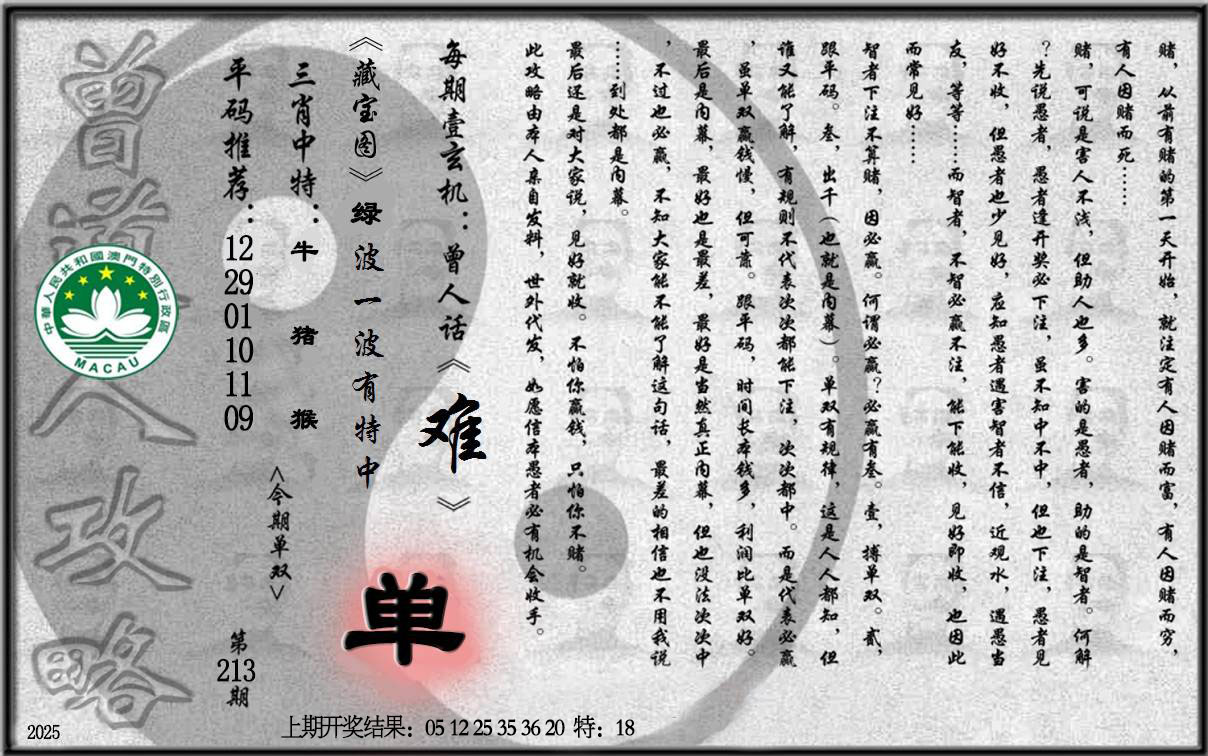 赌，从前有赌的第一天开始，就注定有人因赌而富，有人因赌而穷，
有人因赌而死……
赌，可说是害人不浅，但助人也多。害的是愚者，助的是智者。何解
？先说愚者，愚者逢开奖必下注，虽不知中不中，但也下注，愚者见
好不收，但愚者也少见好，应知愚者遇害智者不信，近观水，遇愚当
友，等等……而智者，不智必赢不注，能下能收，见好即收，也因此
而常见好……
智者下注不算赌，因必赢。何谓必赢？必赢有叁。壹，搏单双。贰，
跟平码。叁，出千（也就是内幕）。单双有规律，这是人人都知，但
谁又能了解，有规则不代表次次都能下注，次次都中。而是代表必赢
，虽单双赢钱慢，但可靠。跟平码，时间长本钱多，利润比单双好。
最后是内幕，最好也是最差，最好是当然真正内幕，但也没法次次中
，不过也必赢，不知大家能不能了解这句话，最差的相信也不用我说
……到处都是内幕。
最后还是对大家说，见好就收。不怕你赢钱，只怕你不赌。
此攻略由本人亲自发料，世外代发，如愿信本愚者必有机会收手。
每期壹玄机：曾人话《难》
《藏宝图》绿波一波有特中
单
三肖中特：牛 猪 猴
<今期单双>
平码推荐：12 29 01 10 11 09
第213期
曾道人攻略
中華人民共和國澳門特別行政區
MACAU
2025
上期开奖结果：05 12 25 35 36 20 特：18